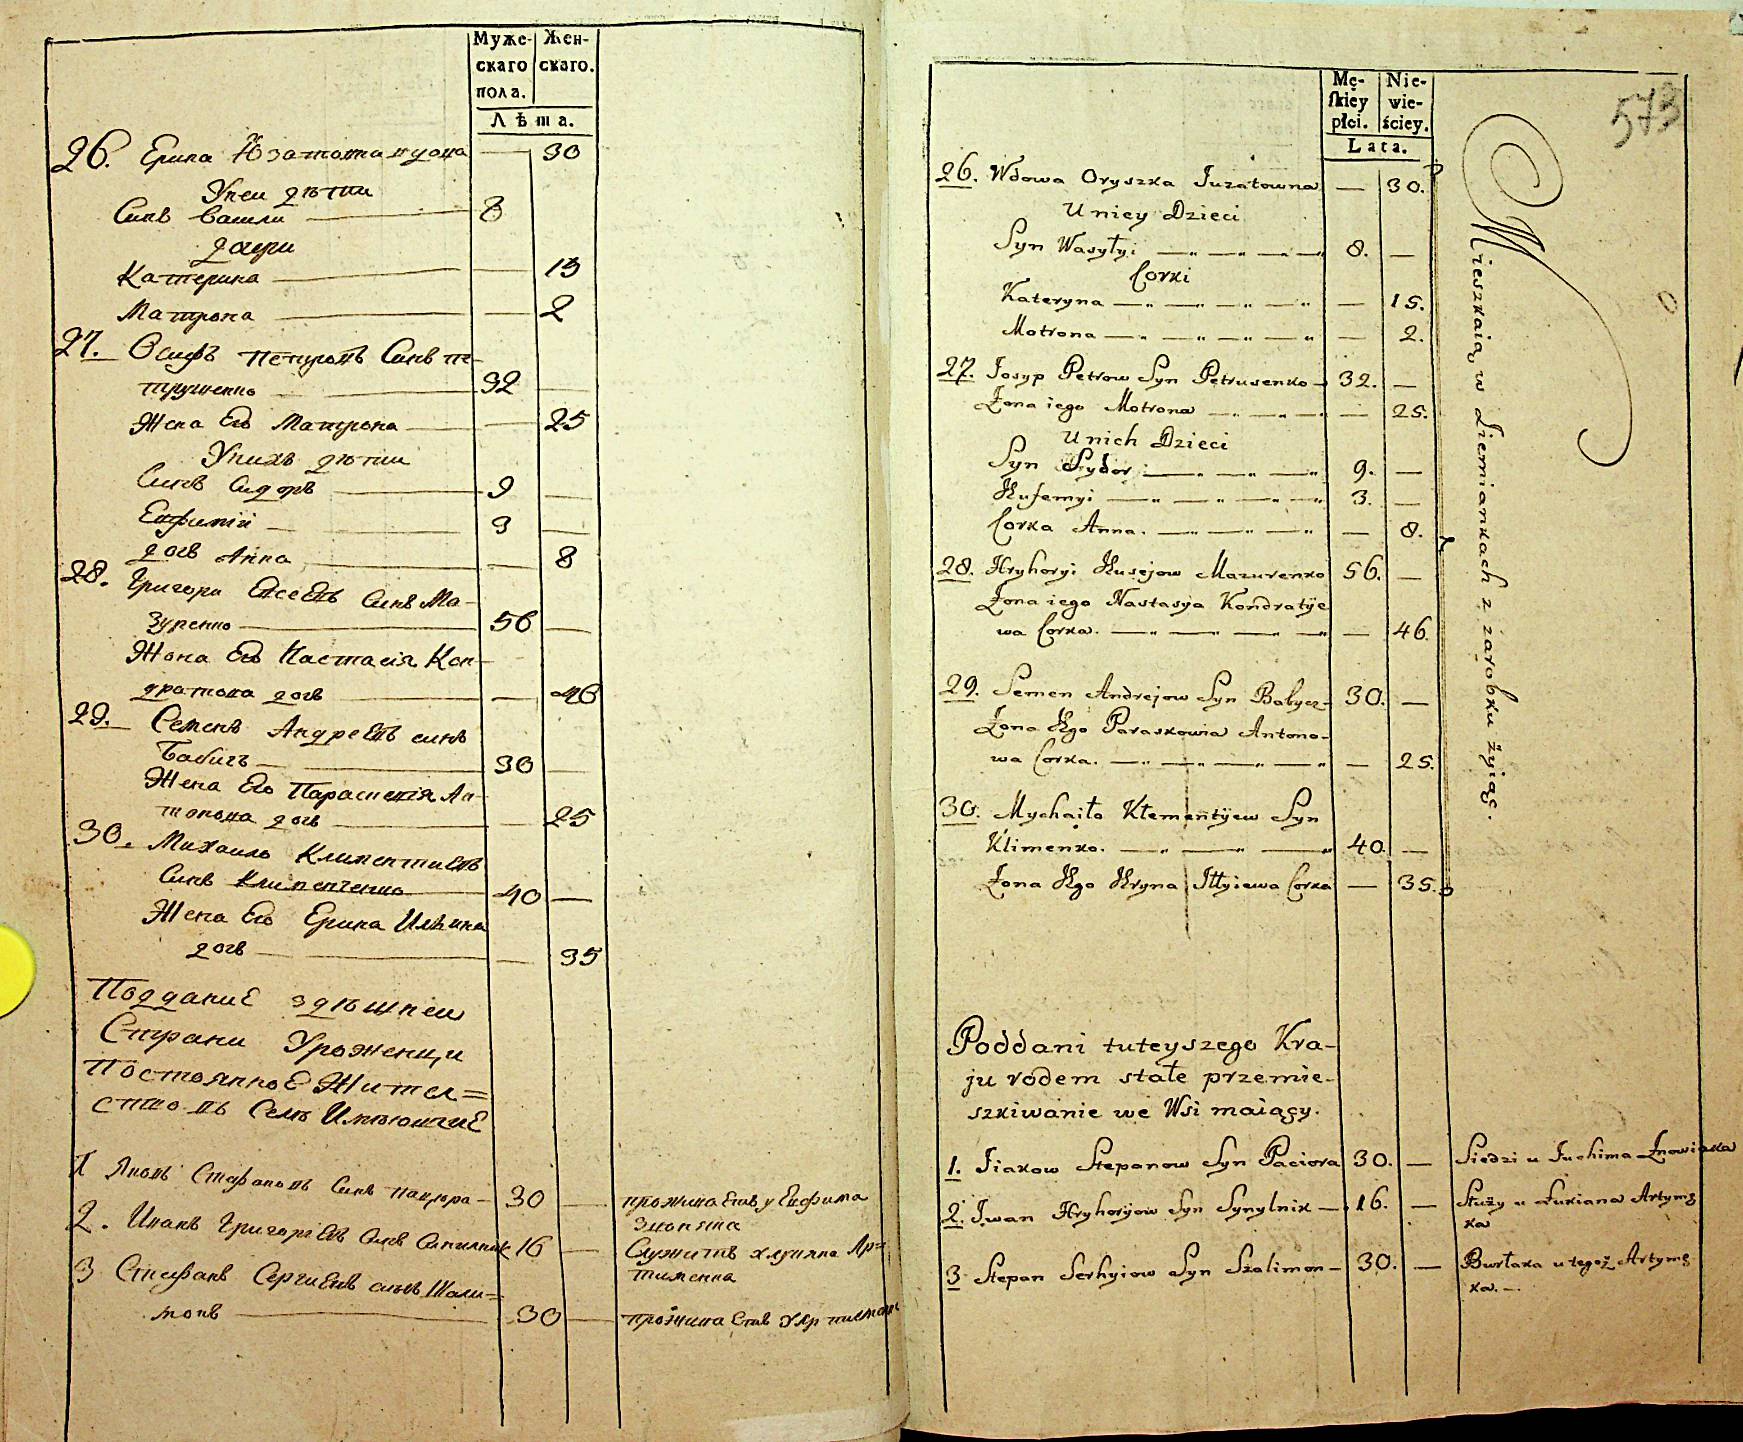 Муже-
скаго
пола.
Жен-
скаго.
Лѣта.
26. Ерина Юзатота вдова — 30
У ней дѣти
Синъ Васили — 8
дочери
Катерина — 15
Матрона — 2
27. Осифъ Петровъ Синъ Пе-
трусенко — 32 —
Жена Его Матрона — 25
У нихъ дѣти
Синъ Сидоръ — 9 —
Евфимій — 3 —
дочь Анна — 8
28. Григори Евсеевъ Синъ Ма-
зуренко — 56 —
Жона Его Настасія Кон-
дратова дочь — 46
29. Семенъ Андреевъ синъ
Бабичъ — 30 —
Жена Его Парасковія Ан-
тонова дочь — 25
30. Михаило Климентиевъ
Синъ Клименченко — 40 —
Жена Его Ерина Илѣина
дочь — 35
Поддание здѣшней
Страни Уроженци
Постоянное Жител=
ство въ Селѣ Имѣющие
1 Яковъ Стефановъ Синъ Пацюра — 30 — проживаетъ у Евфима
2. Иванъ Григориевъ Синъ Синилник 16 — Служитъ
Артименка
3 Стефанъ Сергиевъ синъ Шали=
монъ — 30 — проживаетъ
Mę-
ſkiey
płci.
Nie-
wie-
ściey.
Lata.
573
26. Wdowa Oryszka Juzatowna — 30.
U niey Dzieci
Syn Wasylyi — 8. —
Corki
Kateryna — 15.
Motrona — 2.
27. Josyp Petrow Syn Petrusenko — 32. —
Żona iego Motrona — 25.
U nich Dzieci
Syn Sydor — 9. —
Kufemyi — 3. —
Corka Anna. — 8.
28. Hryhoryi Kusejow Mazurenko 56. —
Żona iego Nastasya Kondratije
wa Corka. — 46.
29. Semen Andrejow Syn Babycz — 30. —
Żona Ego Paraskowia Antono-
wa Corka. — 25.
30. Mychaiło Klementijew Syn
Klimenko. — 40. —
Żona Ego Hryna Iłłyiewa Corka — 35.
Mieszkaią w Ziemiankach z zarobku żyiąc.
Poddani tuteyszego Kra-
ju rodem stałe przemie-
szkiwanie we Wsi maiący.
1. Jiakow Stepanow Syn Paciora 30. — Siedzi u Juchima
2. Iwan Hryhorijow Syn Synylnik — 16. — Służy u Łukiana Artymę
ka
3 Stepan Serhyiow Syn Szalimon — 30. — Burłaka u tegoż Artymę
ka. —